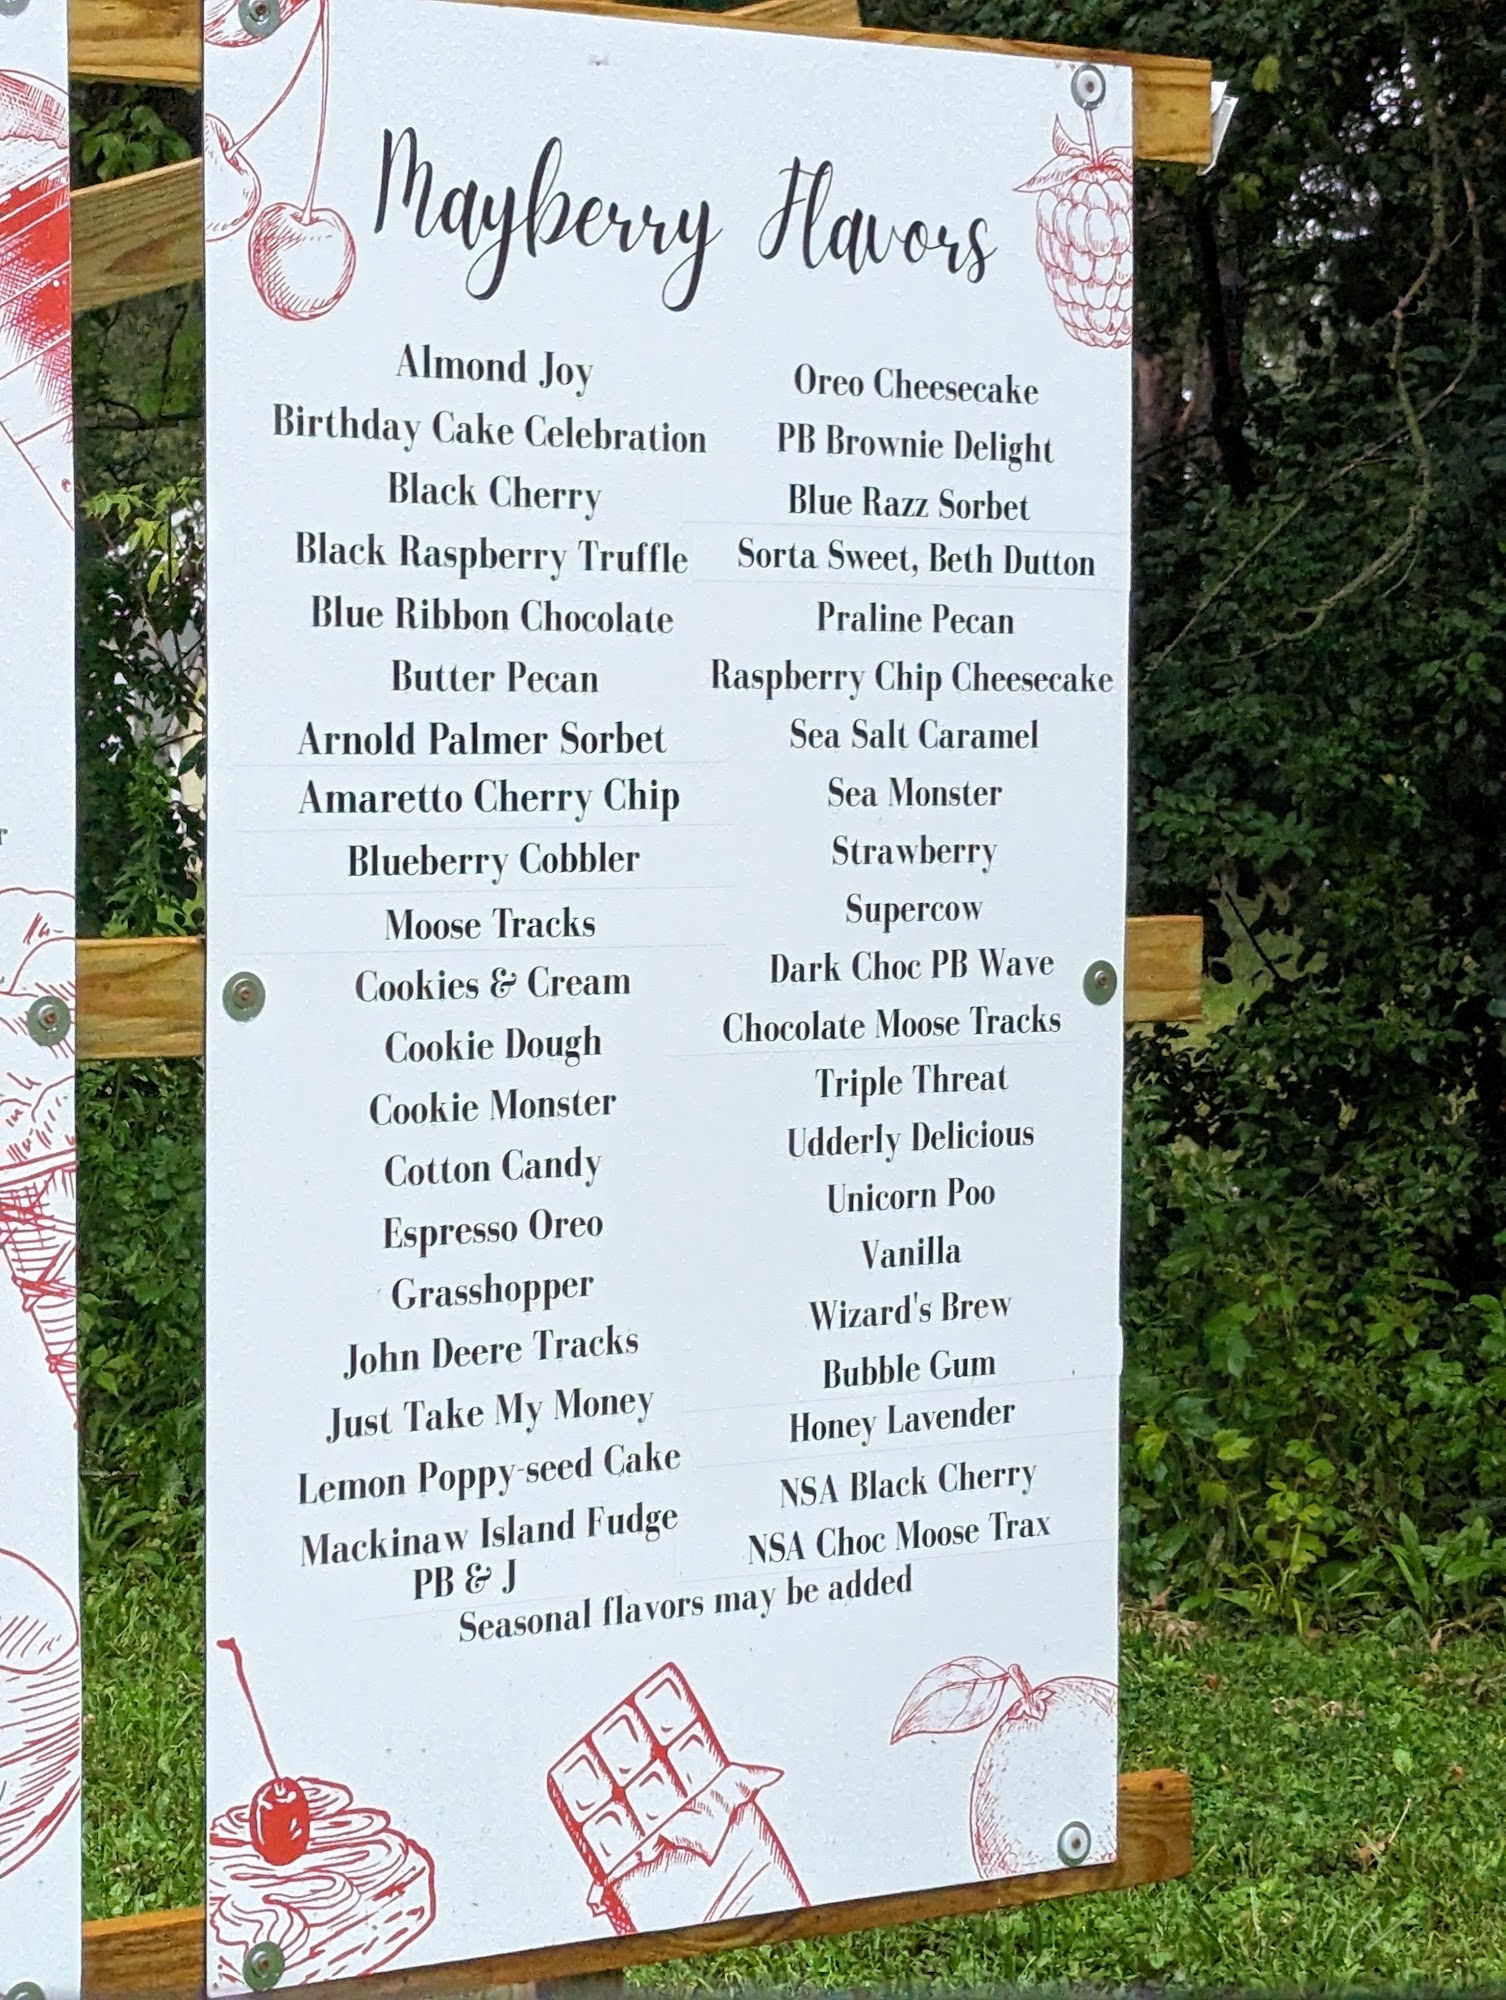 Mayberry Flavors
Almond Joy
Birthday Cake Celebration
Black Cherry
Black Raspberry Truffle
Blue Ribbon Chocolate
Butter Pecan
Arnold Palmer Sorbet
Amaretto Cherry Chip
Blueberry Cobbler
Moose Tracks
Cookies & Cream
Cookie Dough
Cookie Monster
Cotton Candy
Espresso Oreo
Grasshopper
John Deere Tracks
Just Take My Money
Lemon Poppy-seed Cake
Mackinaw Island Fudge
PB & J
Oreo Cheesecake
PB Brownie Delight
Blue Razz Sorbet
Sorta Sweet, Beth Dutton
Praline Pecan
Raspberry Chip Cheesecake
Sea Salt Caramel
Sea Monster
Strawberry
Supercow
Dark Choc PB Wave
Chocolate Moose Tracks
Triple Threat
Udderly Delicious
Unicorn Poo
Vanilla
Wizard's Brew
Bubble Gum
Honey Lavender
NSA Black Cherry
NSA Choc Moose Trax
Seasonal flavors may be added